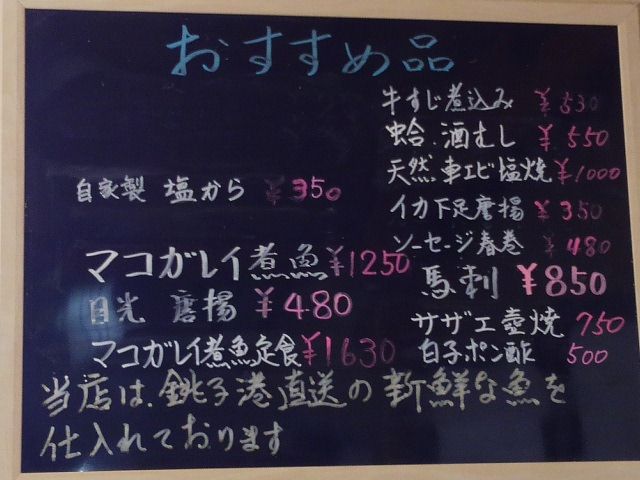 おすすめ品
牛すじ煮込み ¥530
蛤.酒むし ¥550
天然車エビ塩焼 ¥1000
自家製 塩から ¥350
イカ下足唐揚 ¥350
ソーセージ春巻 ¥480
マコガレイ煮魚 ¥1250
馬刺 ¥850
目光 唐揚 ¥480
サザエ壺焼 750
マコガレイ煮魚定食 ¥1630
白子ポン酢 500
当店は、銚子港直送の新鮮な魚を
仕入れております